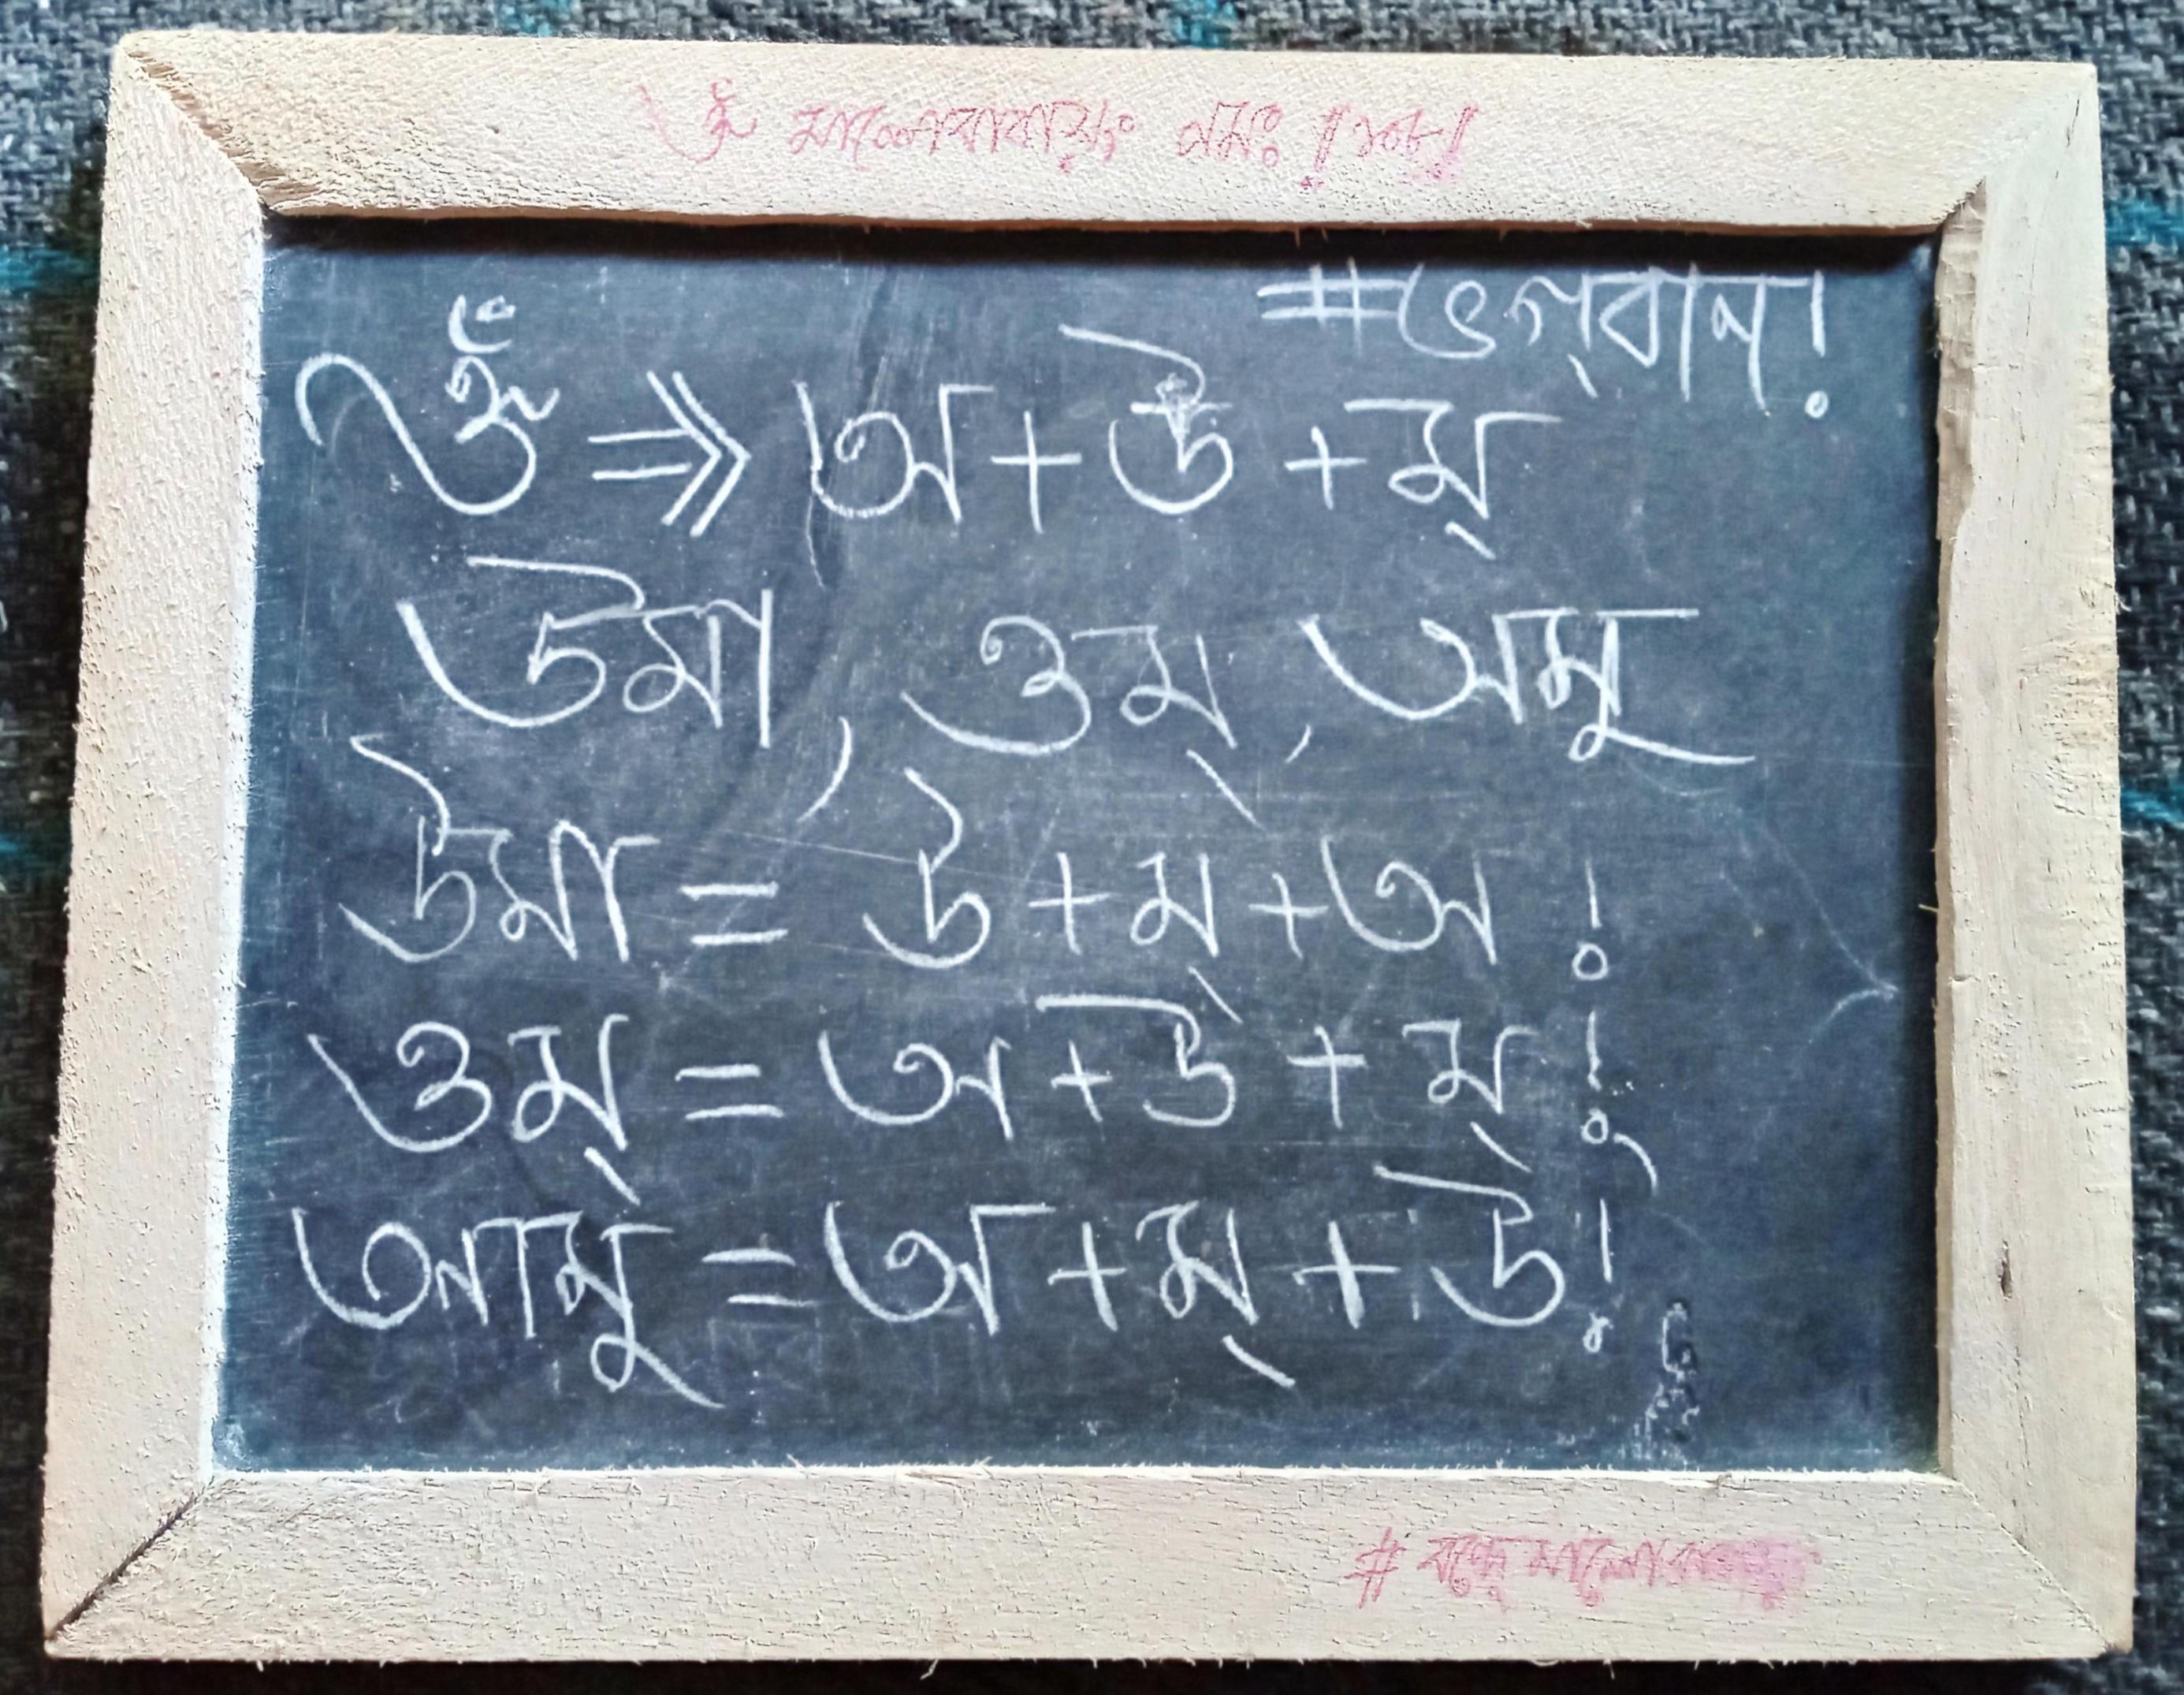 ওঁ নমঃ ॥১০৮॥
#ভগবান!
ওঁ ⇒ অ+উ+ম্
উমা, ওম্, অমু
উমা = উ+ম্+অ!
ওম্ = অ+উ+ম্!
আমু = অ+ম্+উ!
#